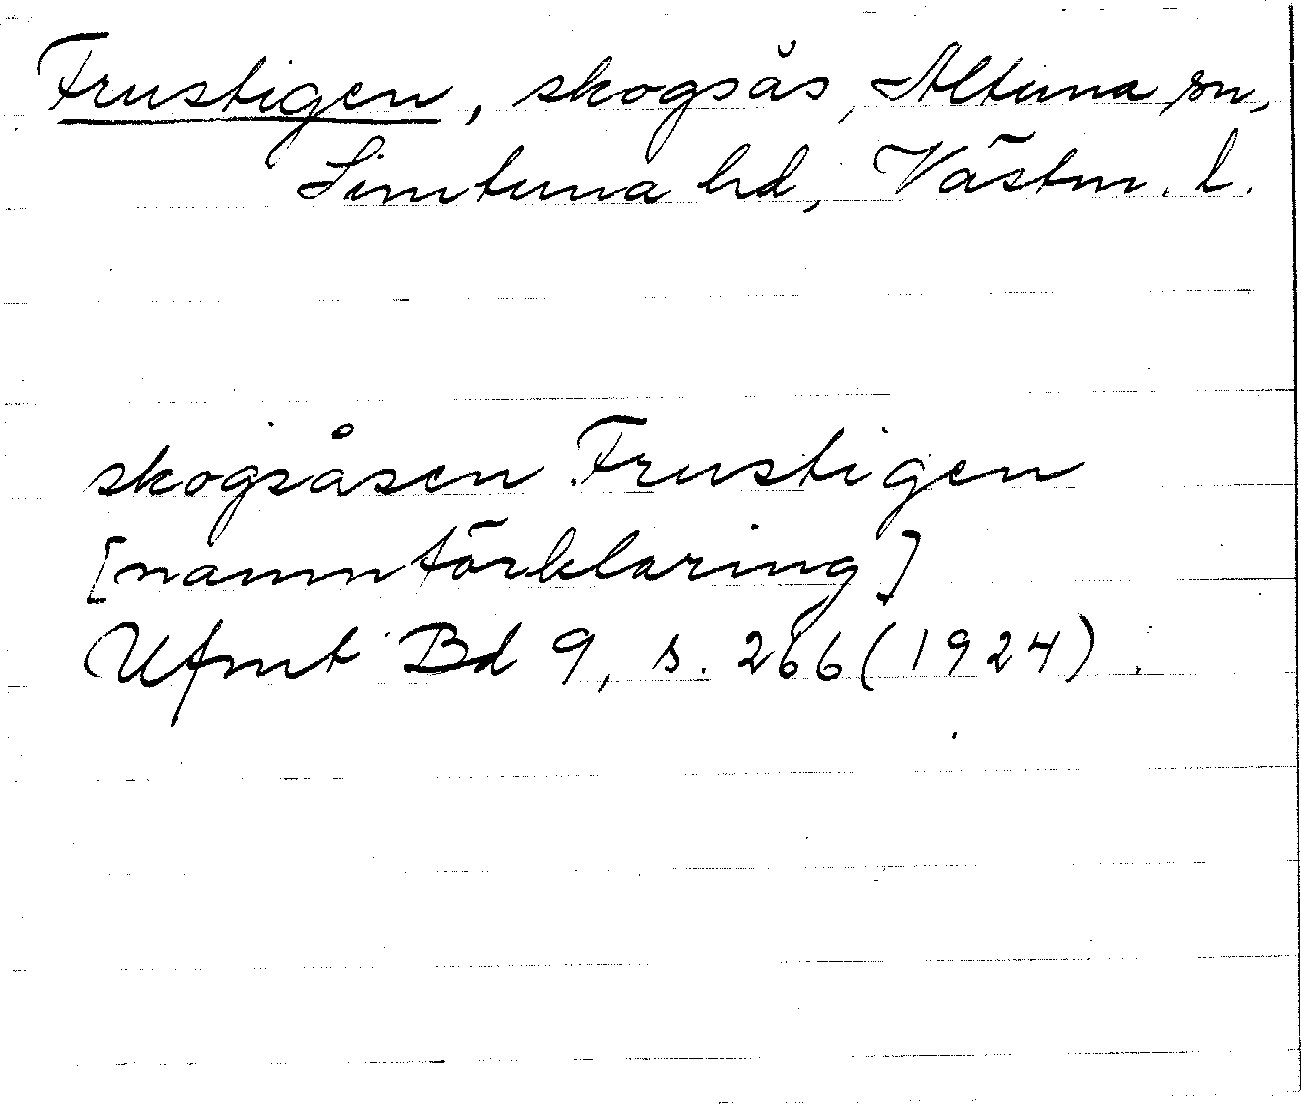 Frustigen, skogsås, Altuna sn,
Simtuna hd, Västm. l.
skogsåsen Frustigen
[namnförklaring]
Ufmt Bd 9, s. 266 (1924).